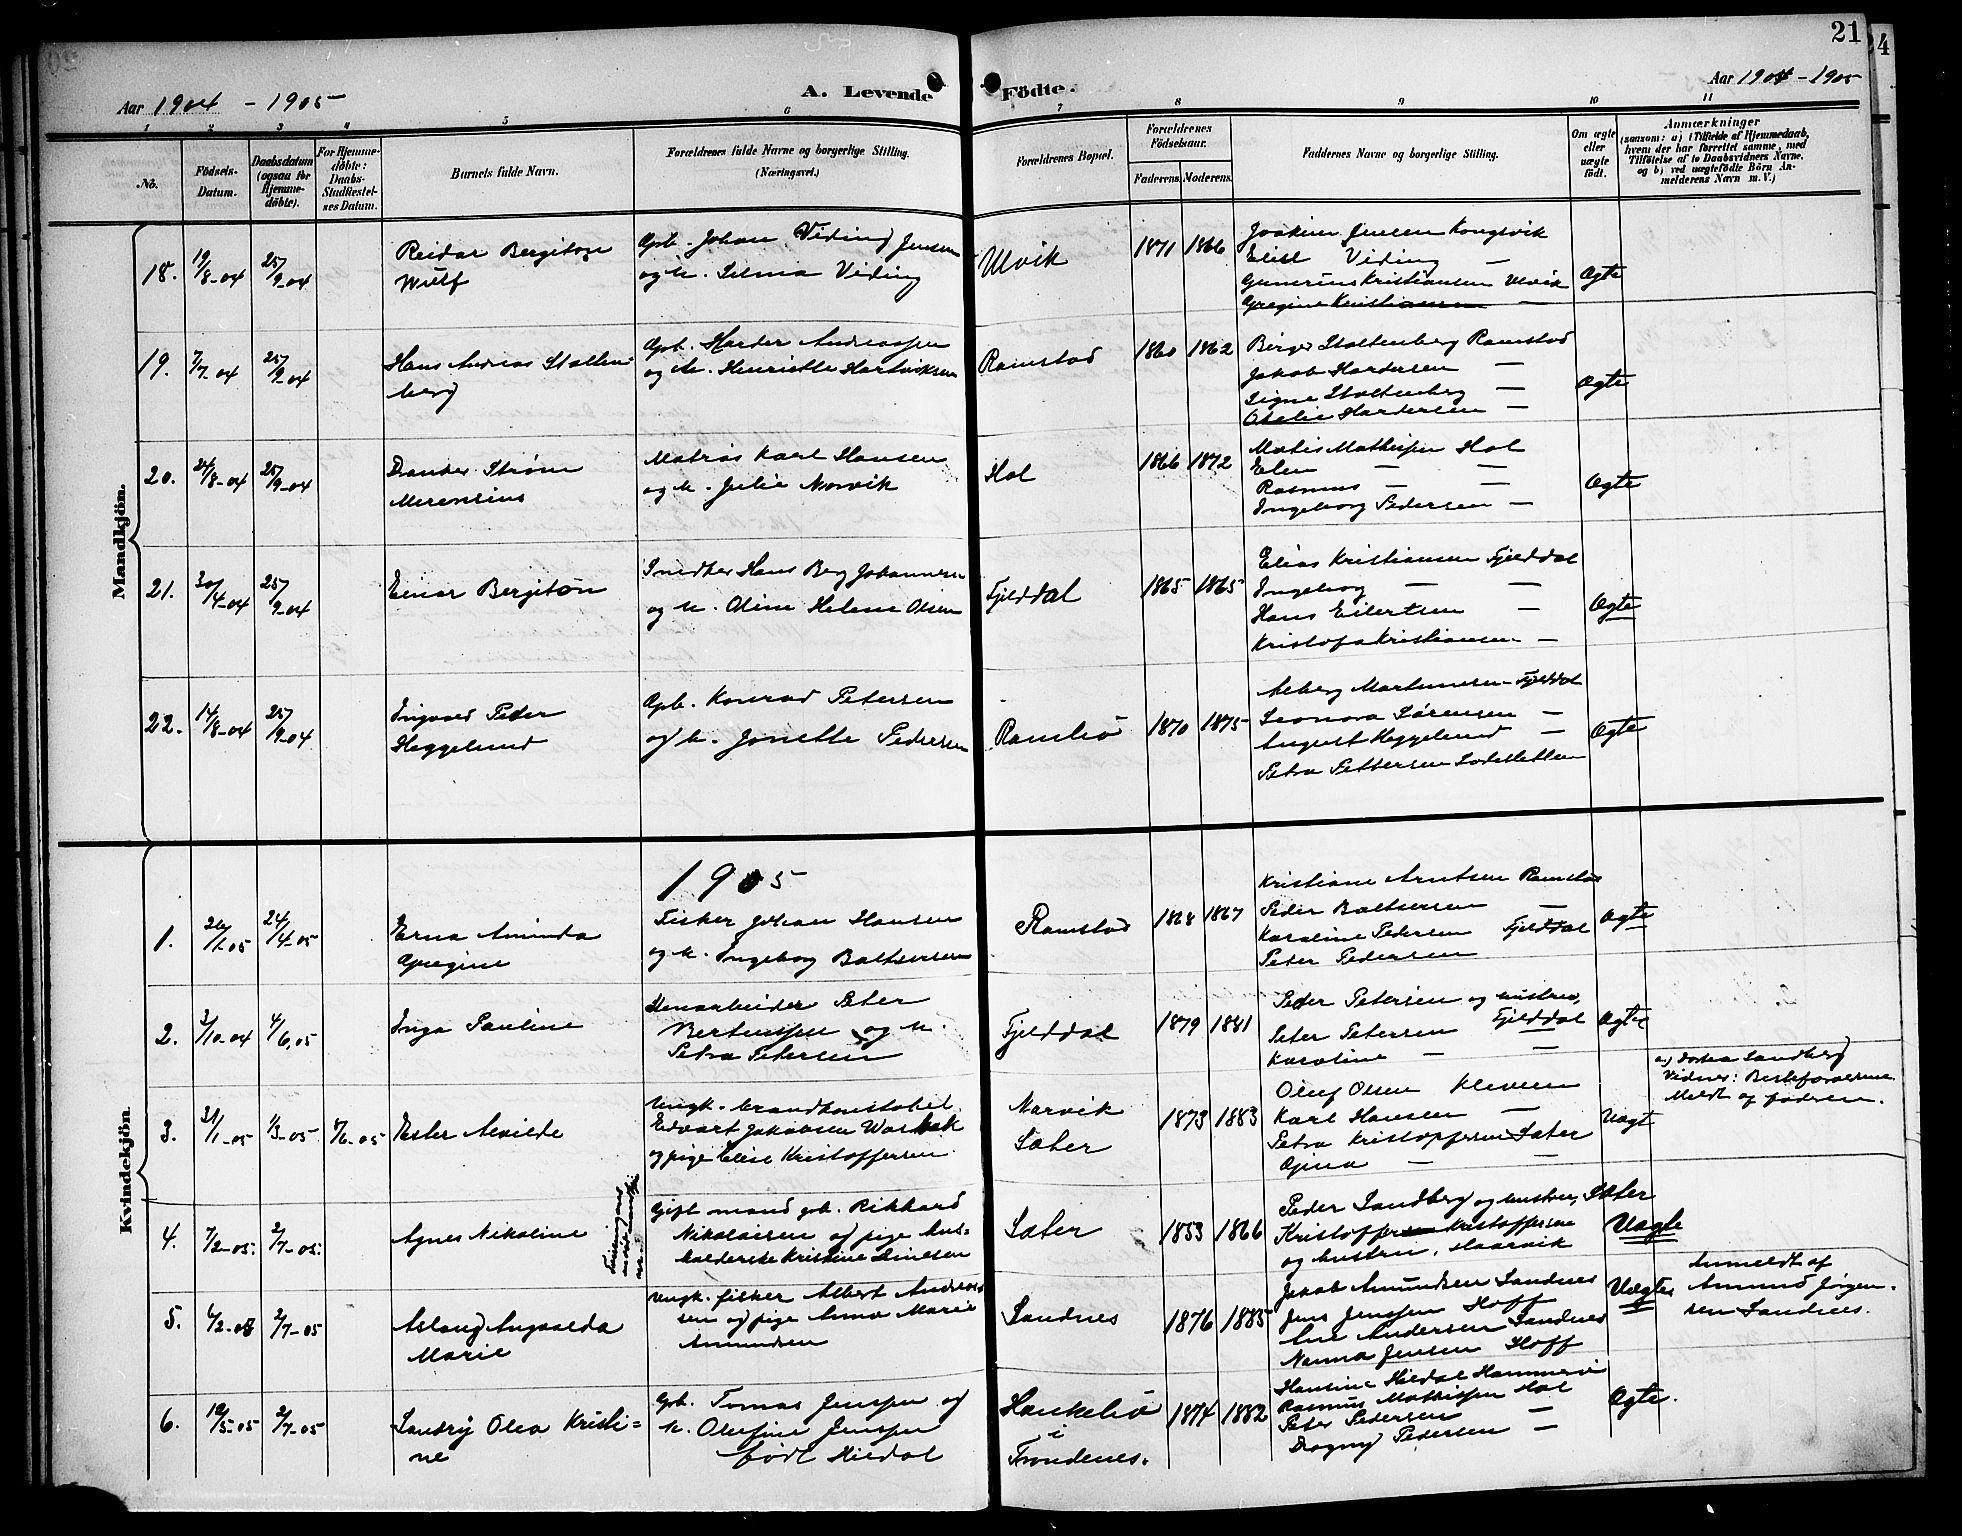 21
24
Aar 1904 - 1905
A. Levende Födte.
Aar 1904 - 1905
1 2 3 4 5 6 7 8 9 10 11
No.
Födsels-
Datum.
Daabsdatum
(ogsaa for
Hjemme-
döbte).
For Hjemme-
döbte:
Daabs-
Stadfæstel-
ses Datum.
Barnets fulde Navn.
Forældrenes fulde Navne og borgerlige Stilling.
(Næringsvei.)
Forældrenes Bopæl.
Forældrenes
Födselsaar.
Faderens. Moderens.
Faddernes Navne og borgerlige Stilling.
Om ægte
eller
uægte
födt.
Anmærkninger
(saasom: a) i Tilfælde af Hjemmedaab,
hvem der har forrettet samme, med
Tilföielse af to Daabsvidners Navne,
og b) ved uægtefödte Börn An-
melderens Navn m. V.)
Mandkjön.
18. 19/8-04 25/9-04
Reidar Bergiton
Wulf
Gpb. Johan Viding Jensen
og h. Selma Viding
Ulvik
1871 1866
Joakim Jensen Kongsvik
Elise Viding —
Gunerius Kristiansen Ulvik
Gregine Kristiansen —
Ægte
19. 7/7-04 25/9-04
Hans Andreas Stolten-
berg
Gpb. Harder Andreassen
og h. Henriette Hartviksen
Ramstad
1860 1862
Birger Stoltenberg Ramstad
Jakob Hardersen —
Signe Stoltenberg —
Otelie Hardersen —
Ægte
20. 24/8-04 25/9-04
Sander Strøm
Merensius
Matros Karl Hansen
og h. Julie Norvik
Hol
1866 1872
Matis Mathisen Hol
Elen — —
Rasmus — —
Ingeborg Pedersen —
Ægte
21. 30/4-04 25/9-04
Einar Bergiton
Snedker Hans Berg Johannesen
og h. Oline Helene Olsen
Fjelddal
1865 1865
Elias Kristiansen Fjelddal
Ingeborg — —
Hans Eilertsen —
Kristofa Kristiansen —
Ægte
22. 14/8-04 25/9-04
Ingvard Peder
Heggelund
Gpb. Konrad Petersen
og h. Jonette Pedersen
Rambø
1870 1875
Aeberg Martinusen Fjelddal
Leonora Sørensen —
August Heggelund —
Petra Pettersen
Ægte
Kvindekjön.
1905
1. 26/1.05 24/4.05
Erna Aminda
Gregine
Fisker Johan Hansen
og h. Ingeborg Baltsersen
Ramstad
1868 1867
Kristiane Arntsen Ramstad
Peder Baltsersen —
Karoline Pedersen Fjelddal
Peter Pedersen
Ægte
2. 3/10-04 4/6.05
Inga Pauline
Stenarbeider Peter
Berteussen og h.
Petra Petersen
Fjelddal
1879 1881
Peder Petersen og hustru,
Peter Petersen Fjelddal
Karoline — —
Ægte
3. 31/1-05 1/3-05 4/6-05
Ester Alvilde
Ungk. brandkonstabel
Edvart Jakobsen
og pige Elise Kristoffersen.
Narvik
Sæter
1873 1883
Oluf Olsen Kleven
Karl Hansen —
Petra Kristoffersen Sæter
Gjina — —
Uægt
a.) Dortea Sandberg
Vidnes: Besteforældrene
Meldt og fødsen.
4. 7/2-05. 2/7-05.
Agnes Nikoline
Gift mand gb. Rikhard
Nikolaisen og pige hus-
holderske Kristine Dinesen
Sæter
1853 1866
Peder Sandberg og hustru, Sæter
Kristoffer Kristoffersen
og hustru, Haarvik
Uægte
5. 4/2-05 2/7-05
Aslaug Ingvalda
Marie
Ungk. fisker Albert Andreas-
sen og pige Anna Marie
Amundsen
Sandnes
1876 1885
Jakob Amundsen Sandnes
Jens Jenssen Hoff
Ane Andersen Sandnes
Nanna Jensen Hoff
Uægte
Anmeldt af
Amund Jørgen-
sen Sandnes.
6. 19/5-05 2/7-05
Sandry Olea Kristi-
ne
Gpb. Tomas Jenssen og
h. Olufine Jenssen
født Hildal
Haukebø
i
Trondenes.
1874 1882
Hansine Hildal Hammerø
Rasmus Mathissen Hol
Peter Pedersen —
Dagny Pedersen —
Ægte.